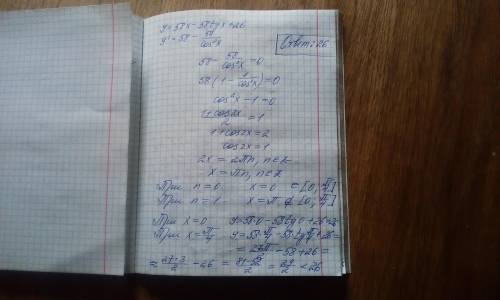 y=58x-58tgx+26
y'=58-58/cos²x
Ответ: 26
58-58/cos²x=0
58(1-1/cos²x)=0
cos²x-1=0
(1+cos2x)/2=1
1+cos2x=2
cos2x=1
2x=2πn, n∈Z
x=πn, n∈Z
При n=0 x=0 ∈[0; π/4]
При n=1 x=π ∉[0; π/4]
При x=0 y=58·0-58tg0+26=
При x=π/4 y=58·π/4-58tgπ/4+26=
-58+26=